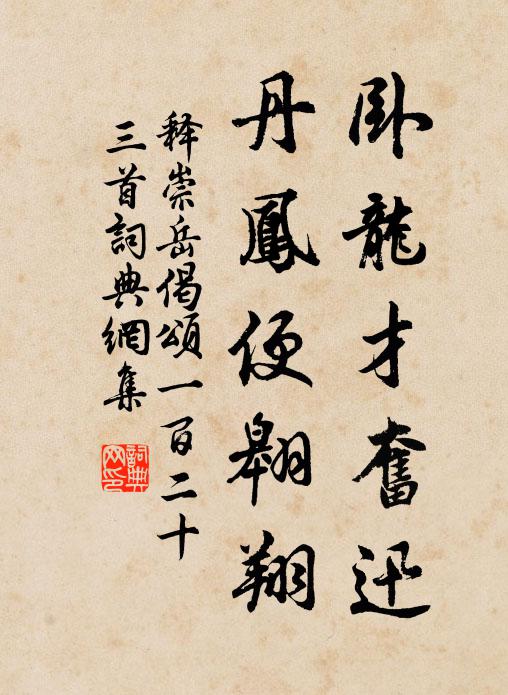 卧龍才奮迅
丹鳳便翱翔
释崇岳偈頌一百二十
三首詞典網集
詞典
网印